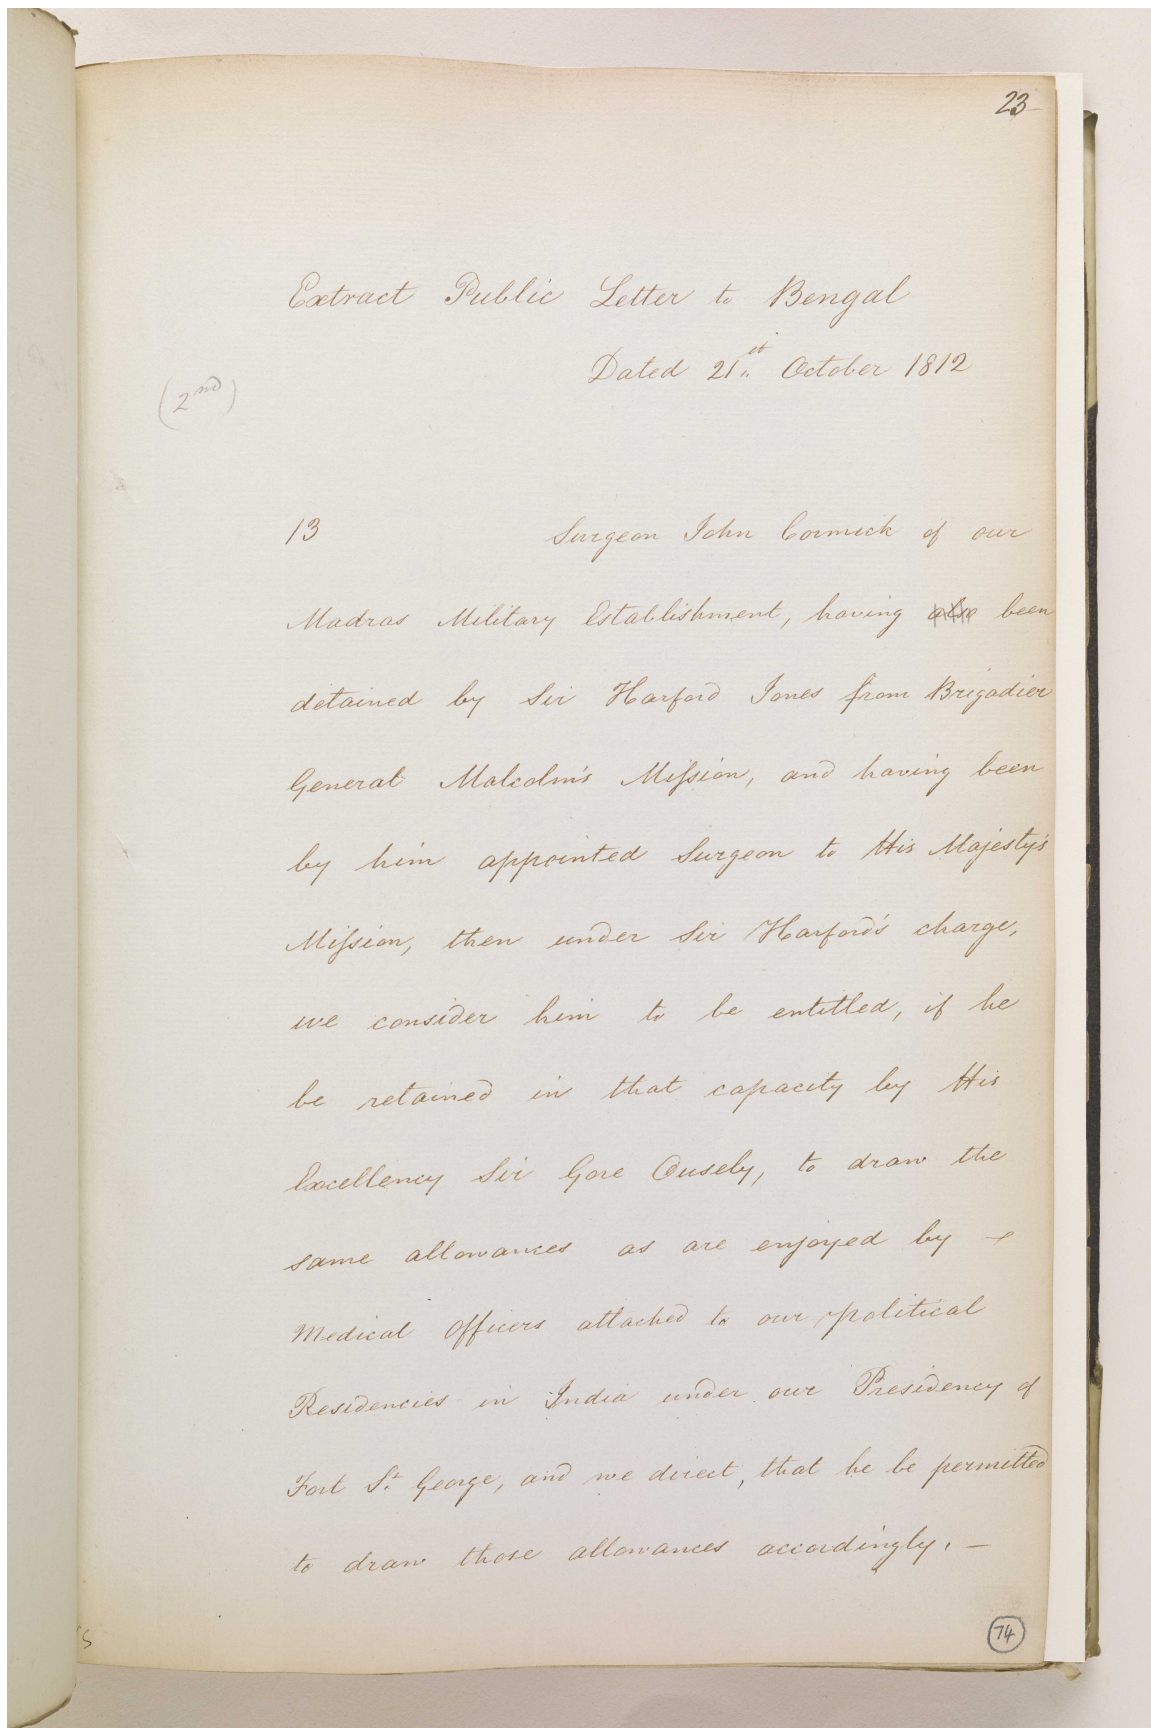 23
Extract Public Letter to Bengal
Dated 21st October 1812
(2nd)
13 Surgeon John Cormick of our
Madras Military Establishment, having also been
detained by Sir Harford Jones from Brigadier
General Malcolm's Mission, and having been
by him appointed Surgeon to His Majesty's
Mission, then under Sir Harford's charge,
we consider him to be entitled, if he
be retained in that capacity by His
Excellency Sir Gore Ousely, to draw the
same allowances as are enjoyed by -
Medical Officers attached to our political
Residencies in India under our Presidency of
Fort St. George, and we direct, that he be permitted
to draw those allowances accordingly. —
74